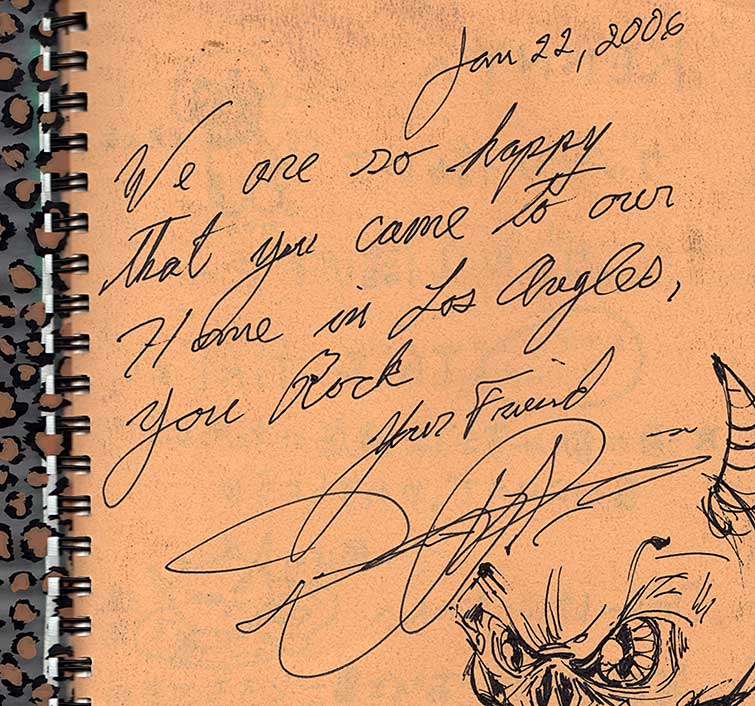 Jan 22, 2006
We are so happy
that you came to our
Home in Los Angles,
you Rock
Your Friend